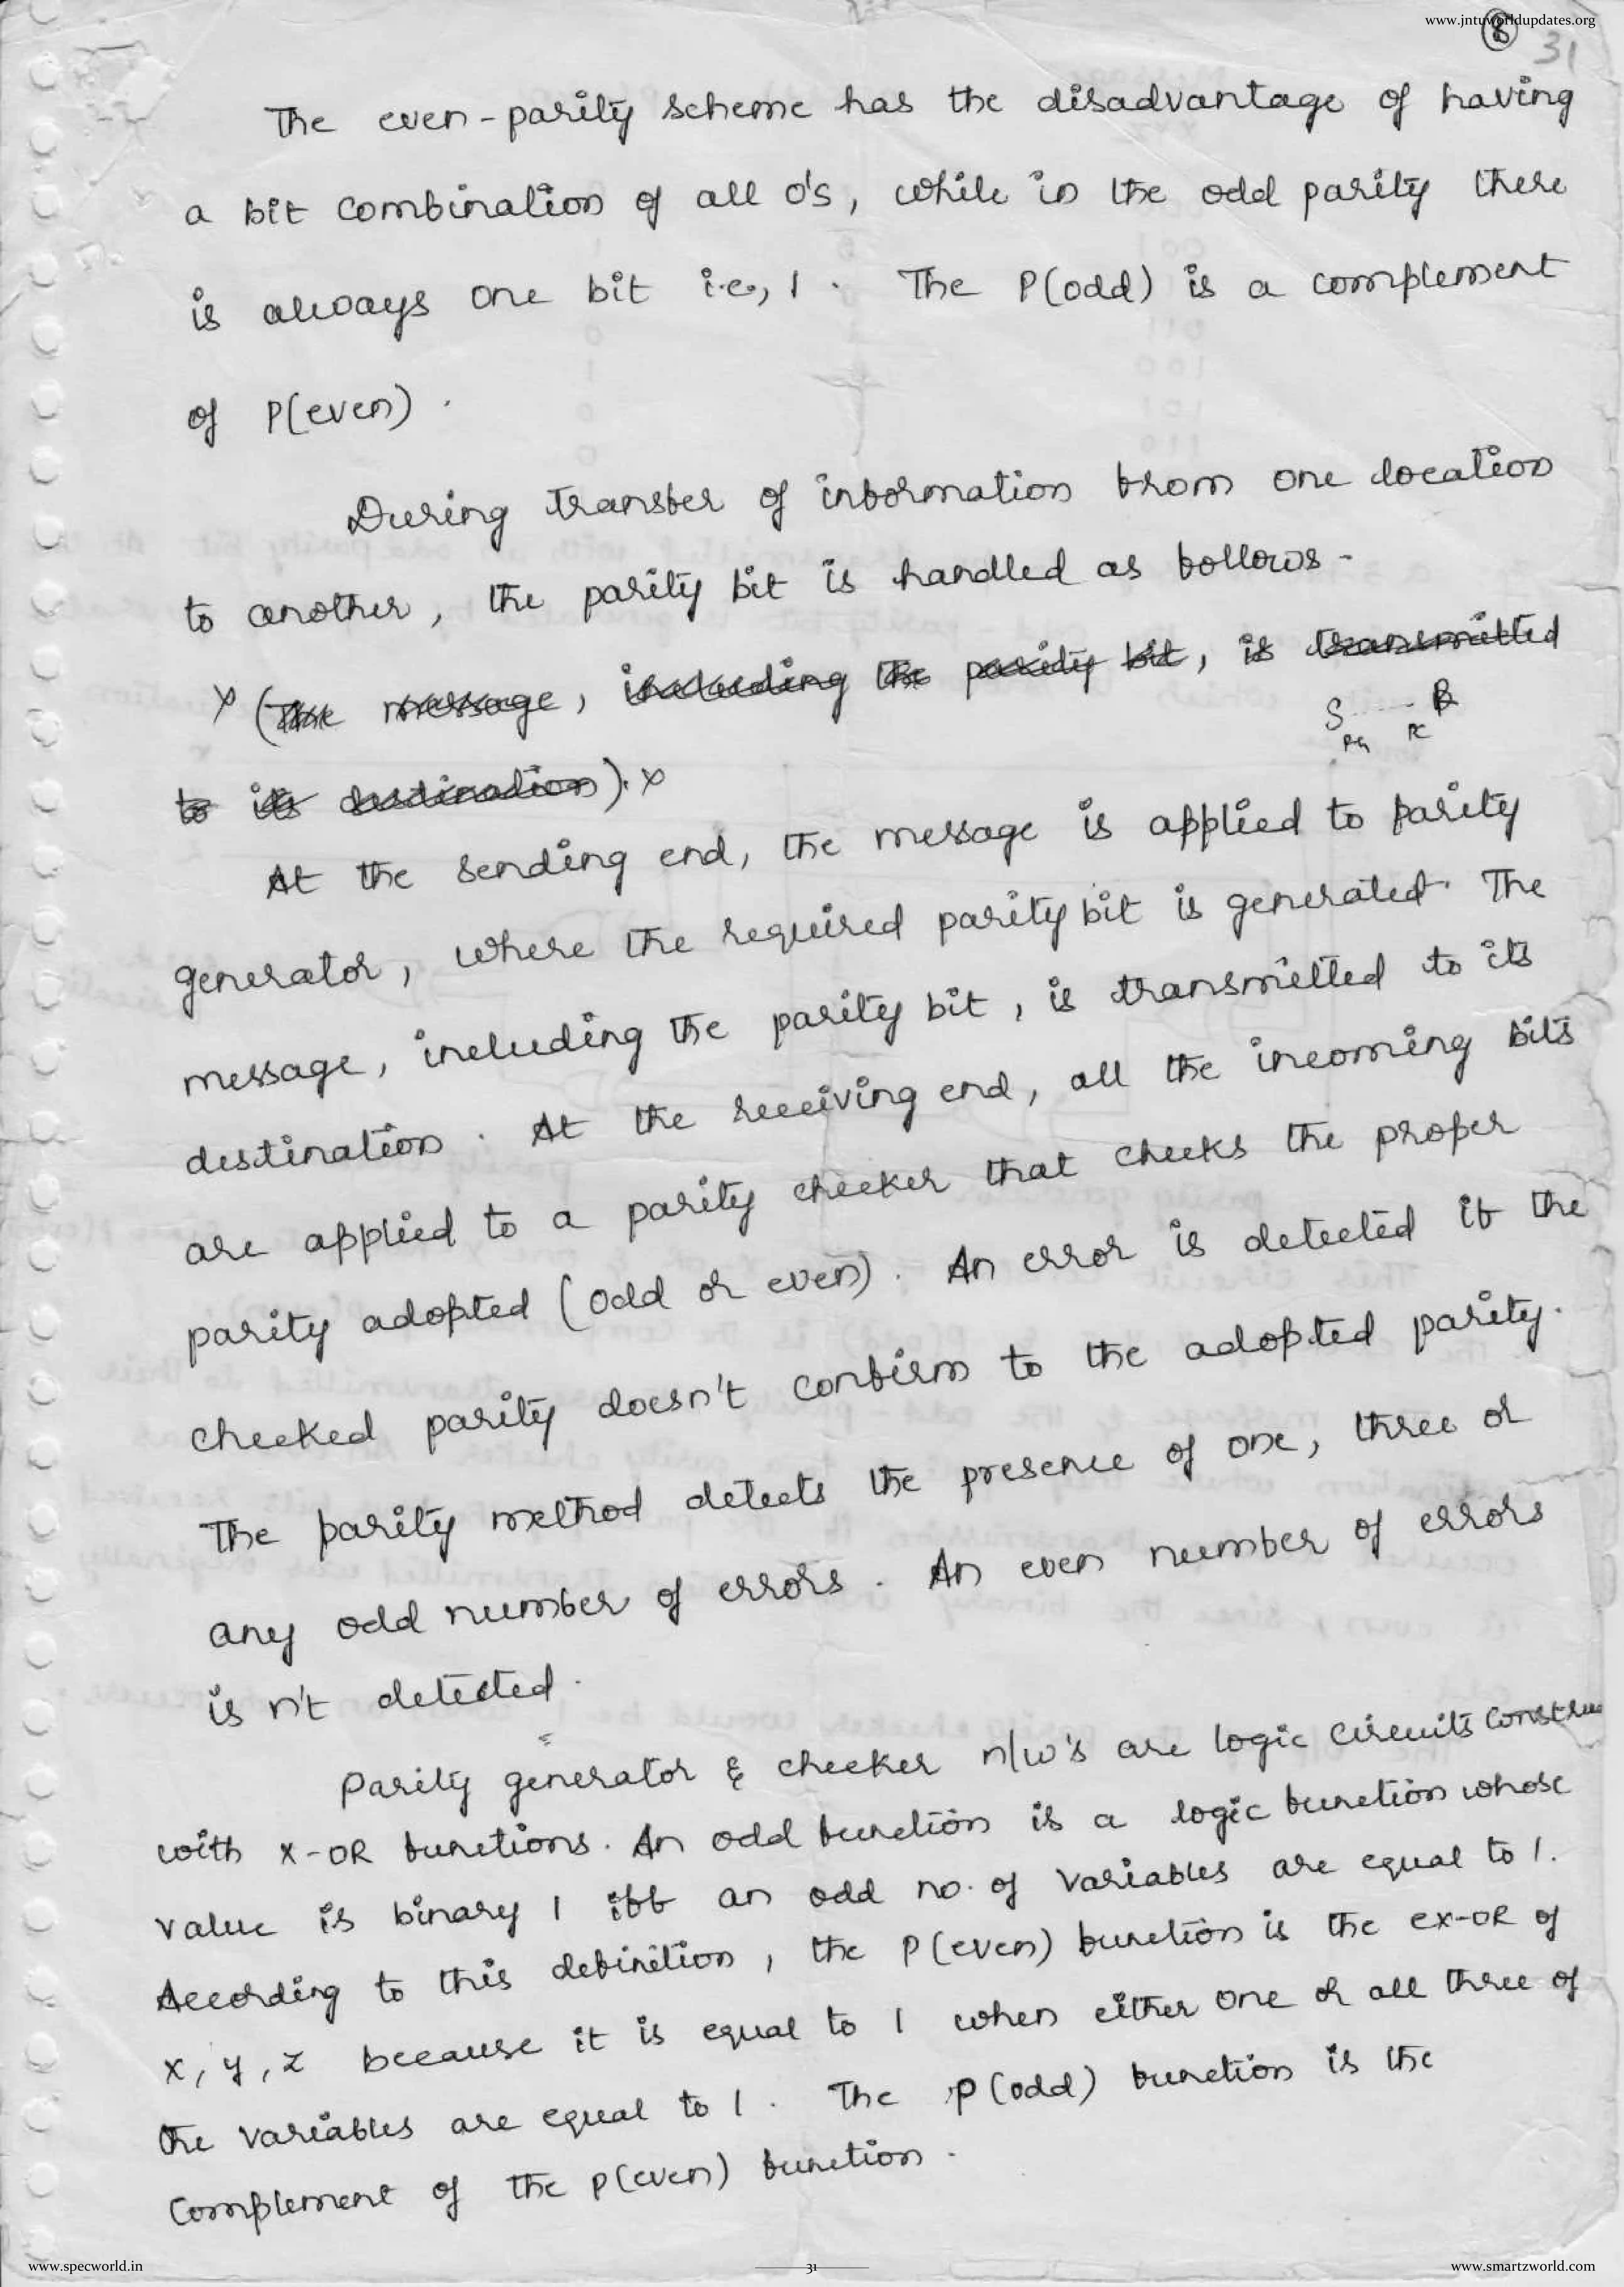 www.jntuworldupdates.org
8
31
The even-parity scheme has the disadvantage of having
a bit combination of all 0's, while in the odd parity there
is always one bit i.e., 1. The P(odd) is a complement
of P(even).
During transfer of information from one location
to another, the parity bit is handled as follows-
x (The message, including the parity bit, is transmitted
S ---- R
PG PC
to its destination). x
At the sending end, the message is applied to parity
generator, where the required parity bit is generated. The
message, including the parity bit, is transmitted to its
destination. At the receiving end, all the incoming bits
are applied to a parity checker that checks the proper
parity adopted (odd or even). An error is detected if the
checked parity doesn't confirm to the adopted parity.
The parity method detects the presence of one, three or
any odd number of errors. An even number of errors
is n't detected.
Parity generator & checker n/w's are logic circuits constru
with X-OR functions. An odd function is a logic function whose
value is binary 1 iff an odd no. of variables are equal to 1.
According to this definition, the P(even) function is the EX-OR of
x, y, z because it is equal to 1 when either one or all three of
the variables are equal to 1. The P(odd) function is the
complement of the P(even) function.
www.specworld.in
31
www.smartzworld.com